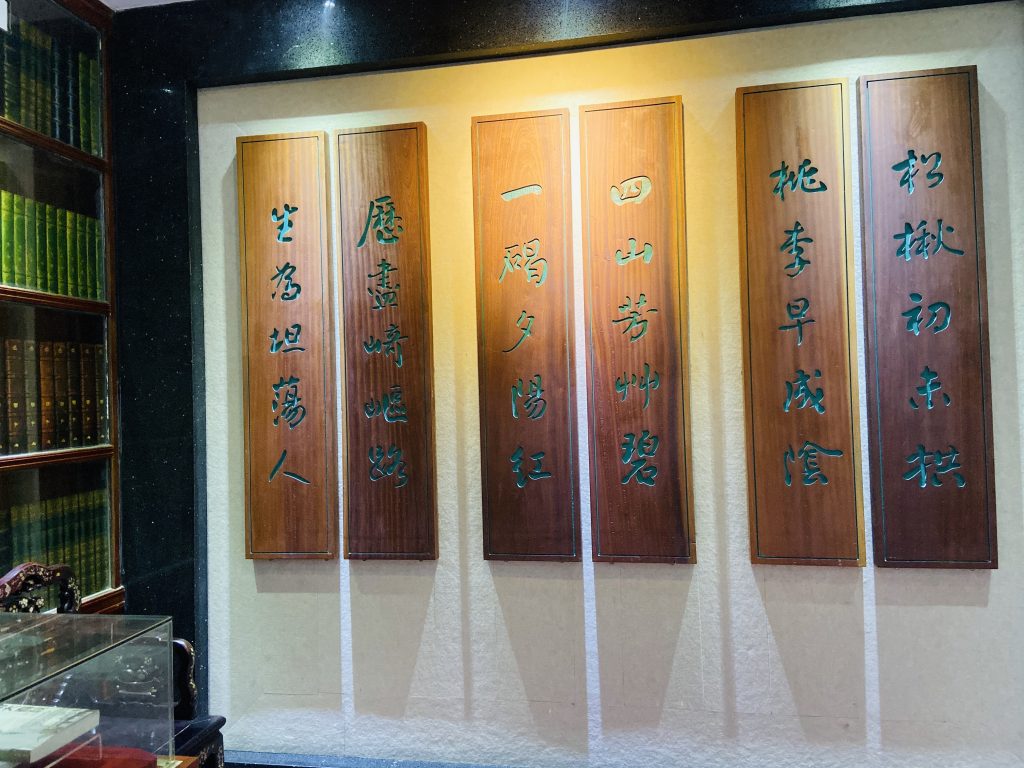 松楸初未拱
桃李早成陰
四山芳艸碧
一碣夕陽紅
歷盡崎嶇路
生為坦蕩人